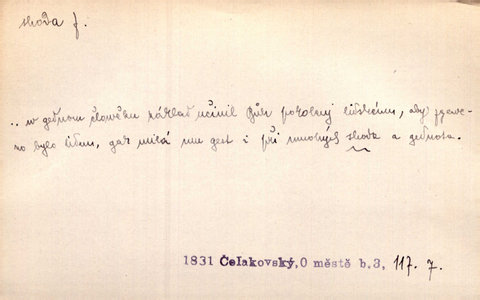 shoda f.
.. w gednom člowěku základ učinil Bůh pokolenj lidskému, aby zgewe-
no bylo lidem, gak milá mu gest i při mnohých shoda a gednota.
1831 Čelakovský, O městě b.3, 117. 7.